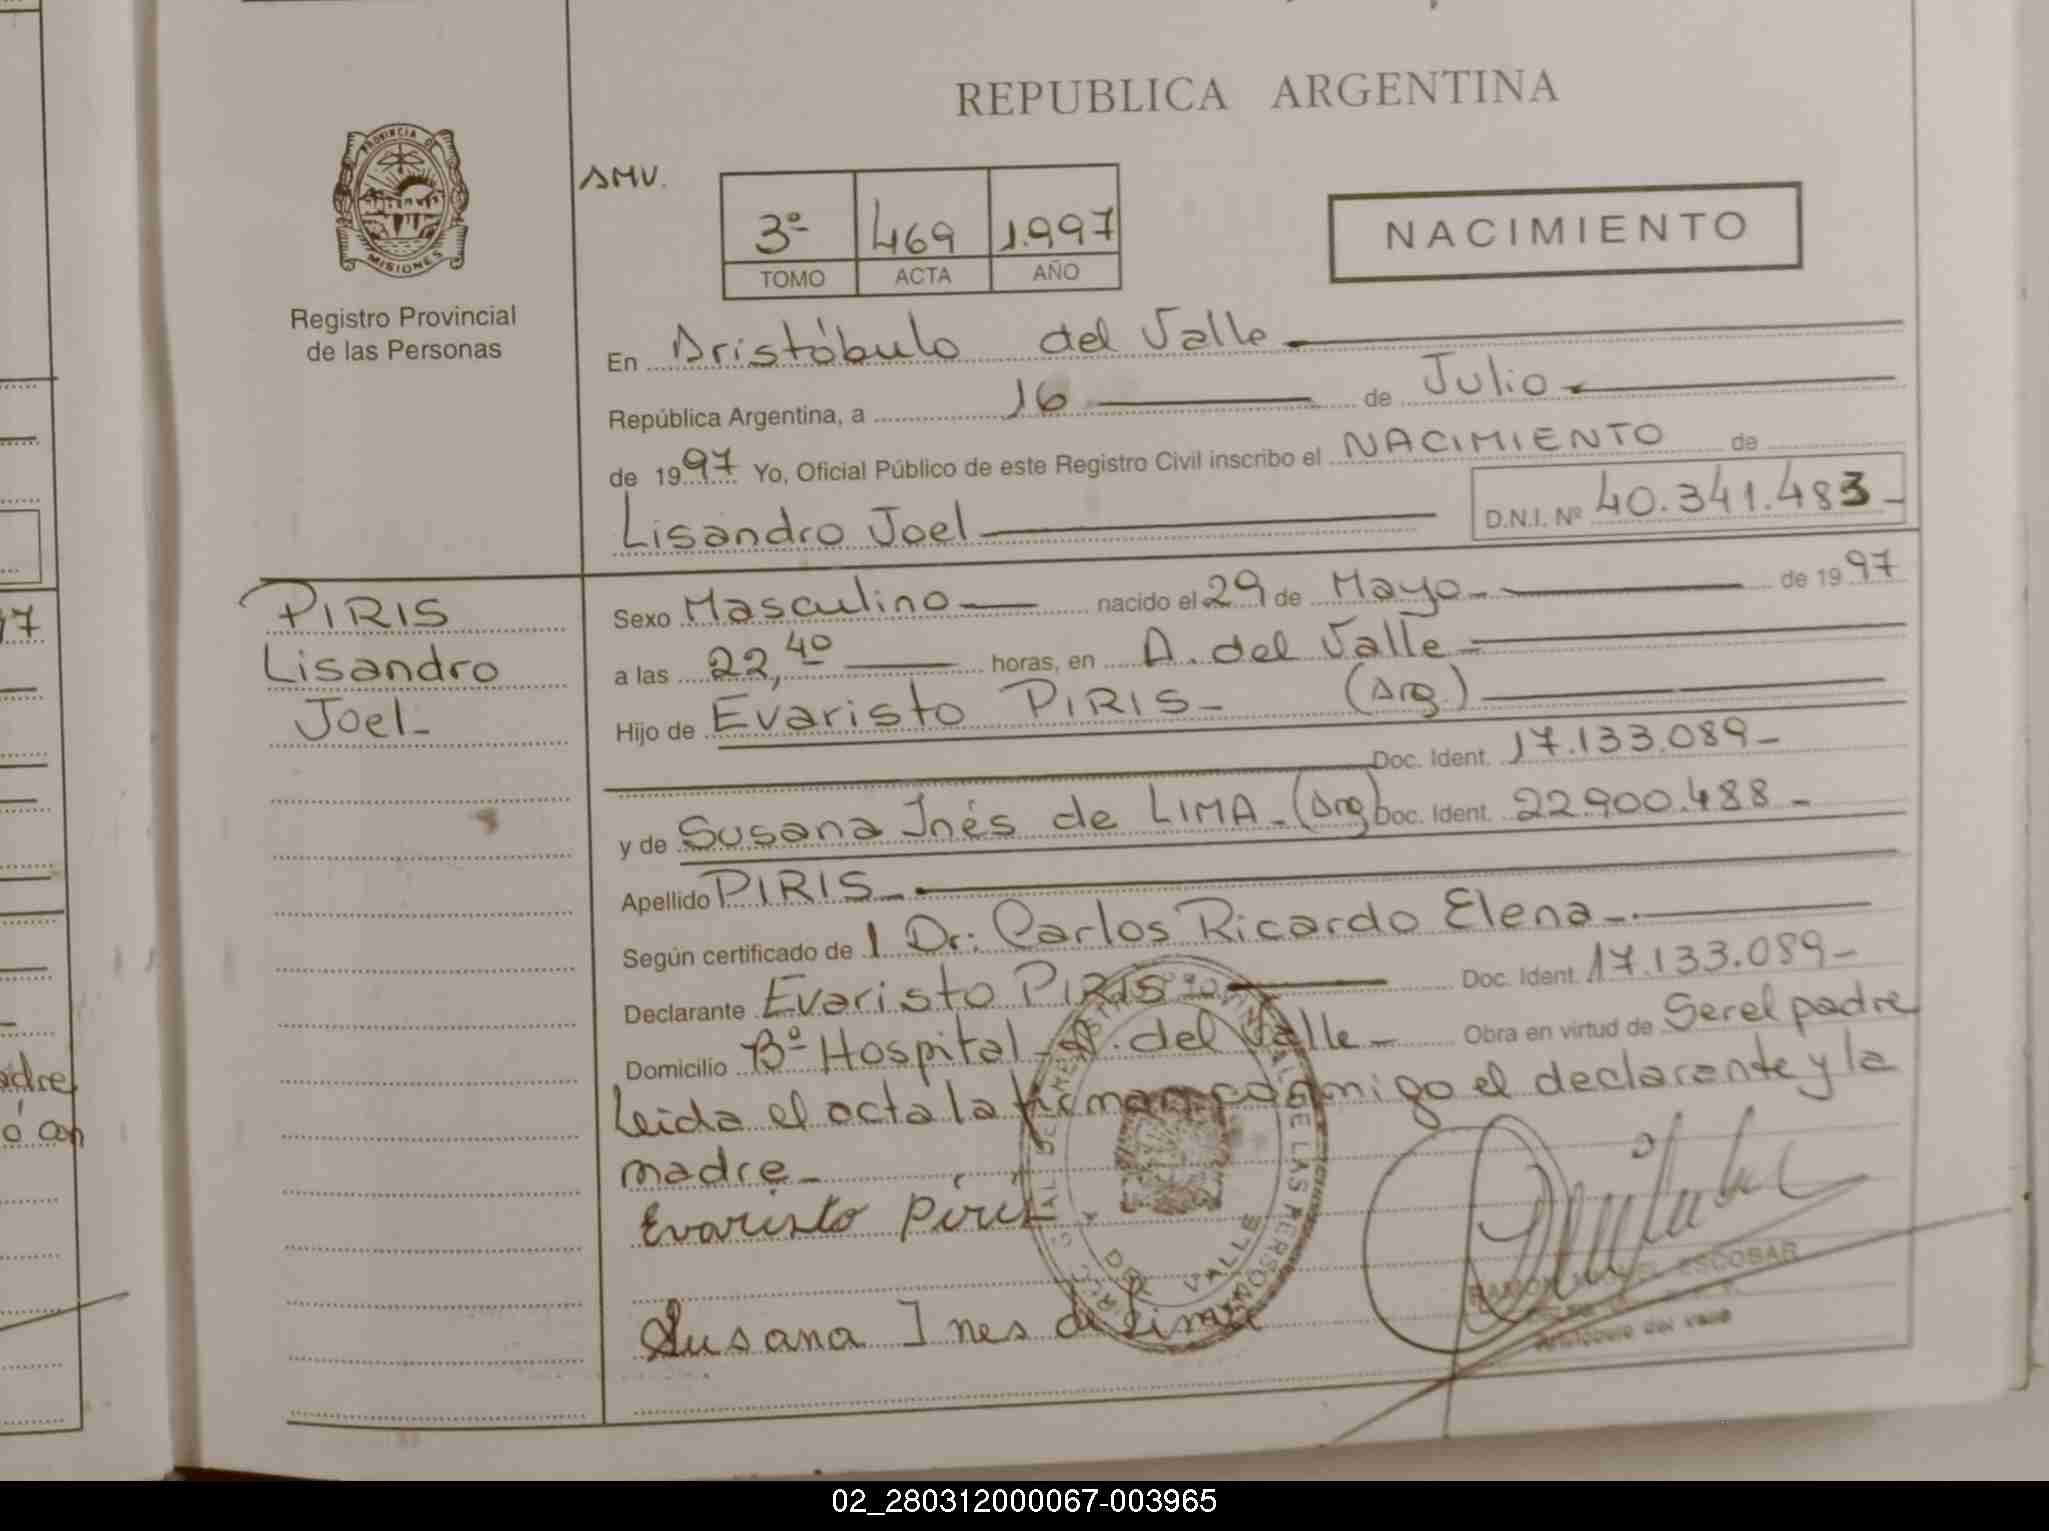 REPUBLICA ARGENTINA
PROVINCIA DE
MISIONES
Registro Provincial
de las Personas
AMV.
3º 469 1.997
TOMO ACTA AÑO
NACIMIENTO
En Aristóbulo del Valle
República Argentina, a 16 de Julio
de 1997 Yo, Oficial Público de este Registro Civil inscribo el NACIMIENTO de
Lisandro Joel D.N.I. Nº 40.341.483-
PIRIS
Lisandro
Joel-
Sexo Masculino nacido el 29 de Mayo- de 1997
a las 22,40 horas, en A. del Valle-
Hijo de Evaristo PIRIS- (Arg.)
Doc. Ident. 17.133.089-
y de Susana Inés de LIMA-(Arg) Doc. Ident. 22.900.488-
Apellido PIRIS-
Según certificado de 1 Dr: Carlos Ricardo Elena-
Declarante Evaristo PIRIS Doc. Ident. 17.133.089-
Domicilio Bº Hospital-A. del Valle- Obra en virtud de Ser el padre
Leida el acta la firman conmigo el declarante y la
madre-
Evaristo Piris
Susana Ines de Lima
RAMON MIGUEL ESCOBAR
Aristobulo del Valle
17
adre
ó con
02_280312000067-003965